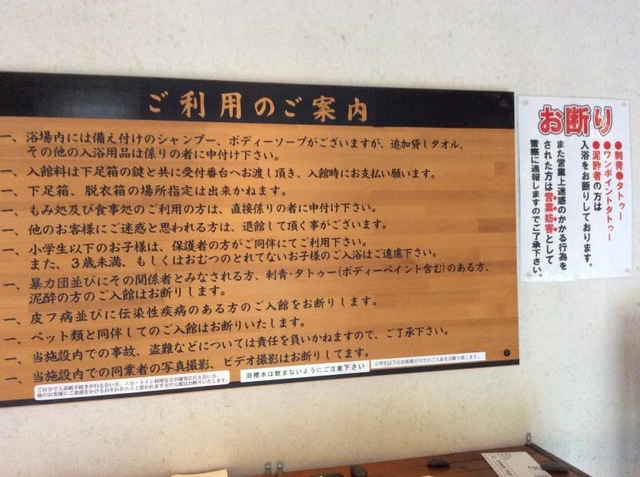 ご利用のご案内
一、浴場内には備え付けのシャンプー、ボディーソープがございますが、追加貸しタオル、
その他の入浴用品は係りの者に申付け下さい。
一、入館料は下足箱の鍵と共に受付番台へお渡し頂き、入館時にお支払い願います。
一、下足箱、脱衣箱の場所指定は出来かねます。
一、もみ処及び食事処のご利用の方は、直接係りの者に申付け下さい。
一、他のお客様にご迷惑と思われる方は、退館して頂く事がございます。
一、小学生以下のお子様は、保護者の方がご同伴にてご利用下さい。
また、3歳未満、もしくはおむつのとれてないお子様のご入浴はご遠慮下さい。
一、暴力団並びにその関係者とみなされる方、刺青・タトゥー(ボディーペイント含む)のある方、
泥酔の方のご入館はお断りします。
一、皮フ病並びに伝染性疾病のある方のご入館をお断りします。
一、ペット類と同伴してのご入館はお断りいたします。
一、当施設内での事故、盗難などについては責任を負いかねますので、ご了承下さい。
一、当施設内での同業者の写真撮影、ビデオ撮影はお断りしてます。
浴槽水は飲まないようにご注意下さい
小学生以下のお客様だけでのご入館をお断り致します。
お断り
●刺青●タトゥー
●ワンポイントタトゥー
●泥酔者の方は
入浴をお断りしております。
また営業上迷惑のかかる行為を
された方は営業妨害として
警察に通報しますのでご了承下さい。